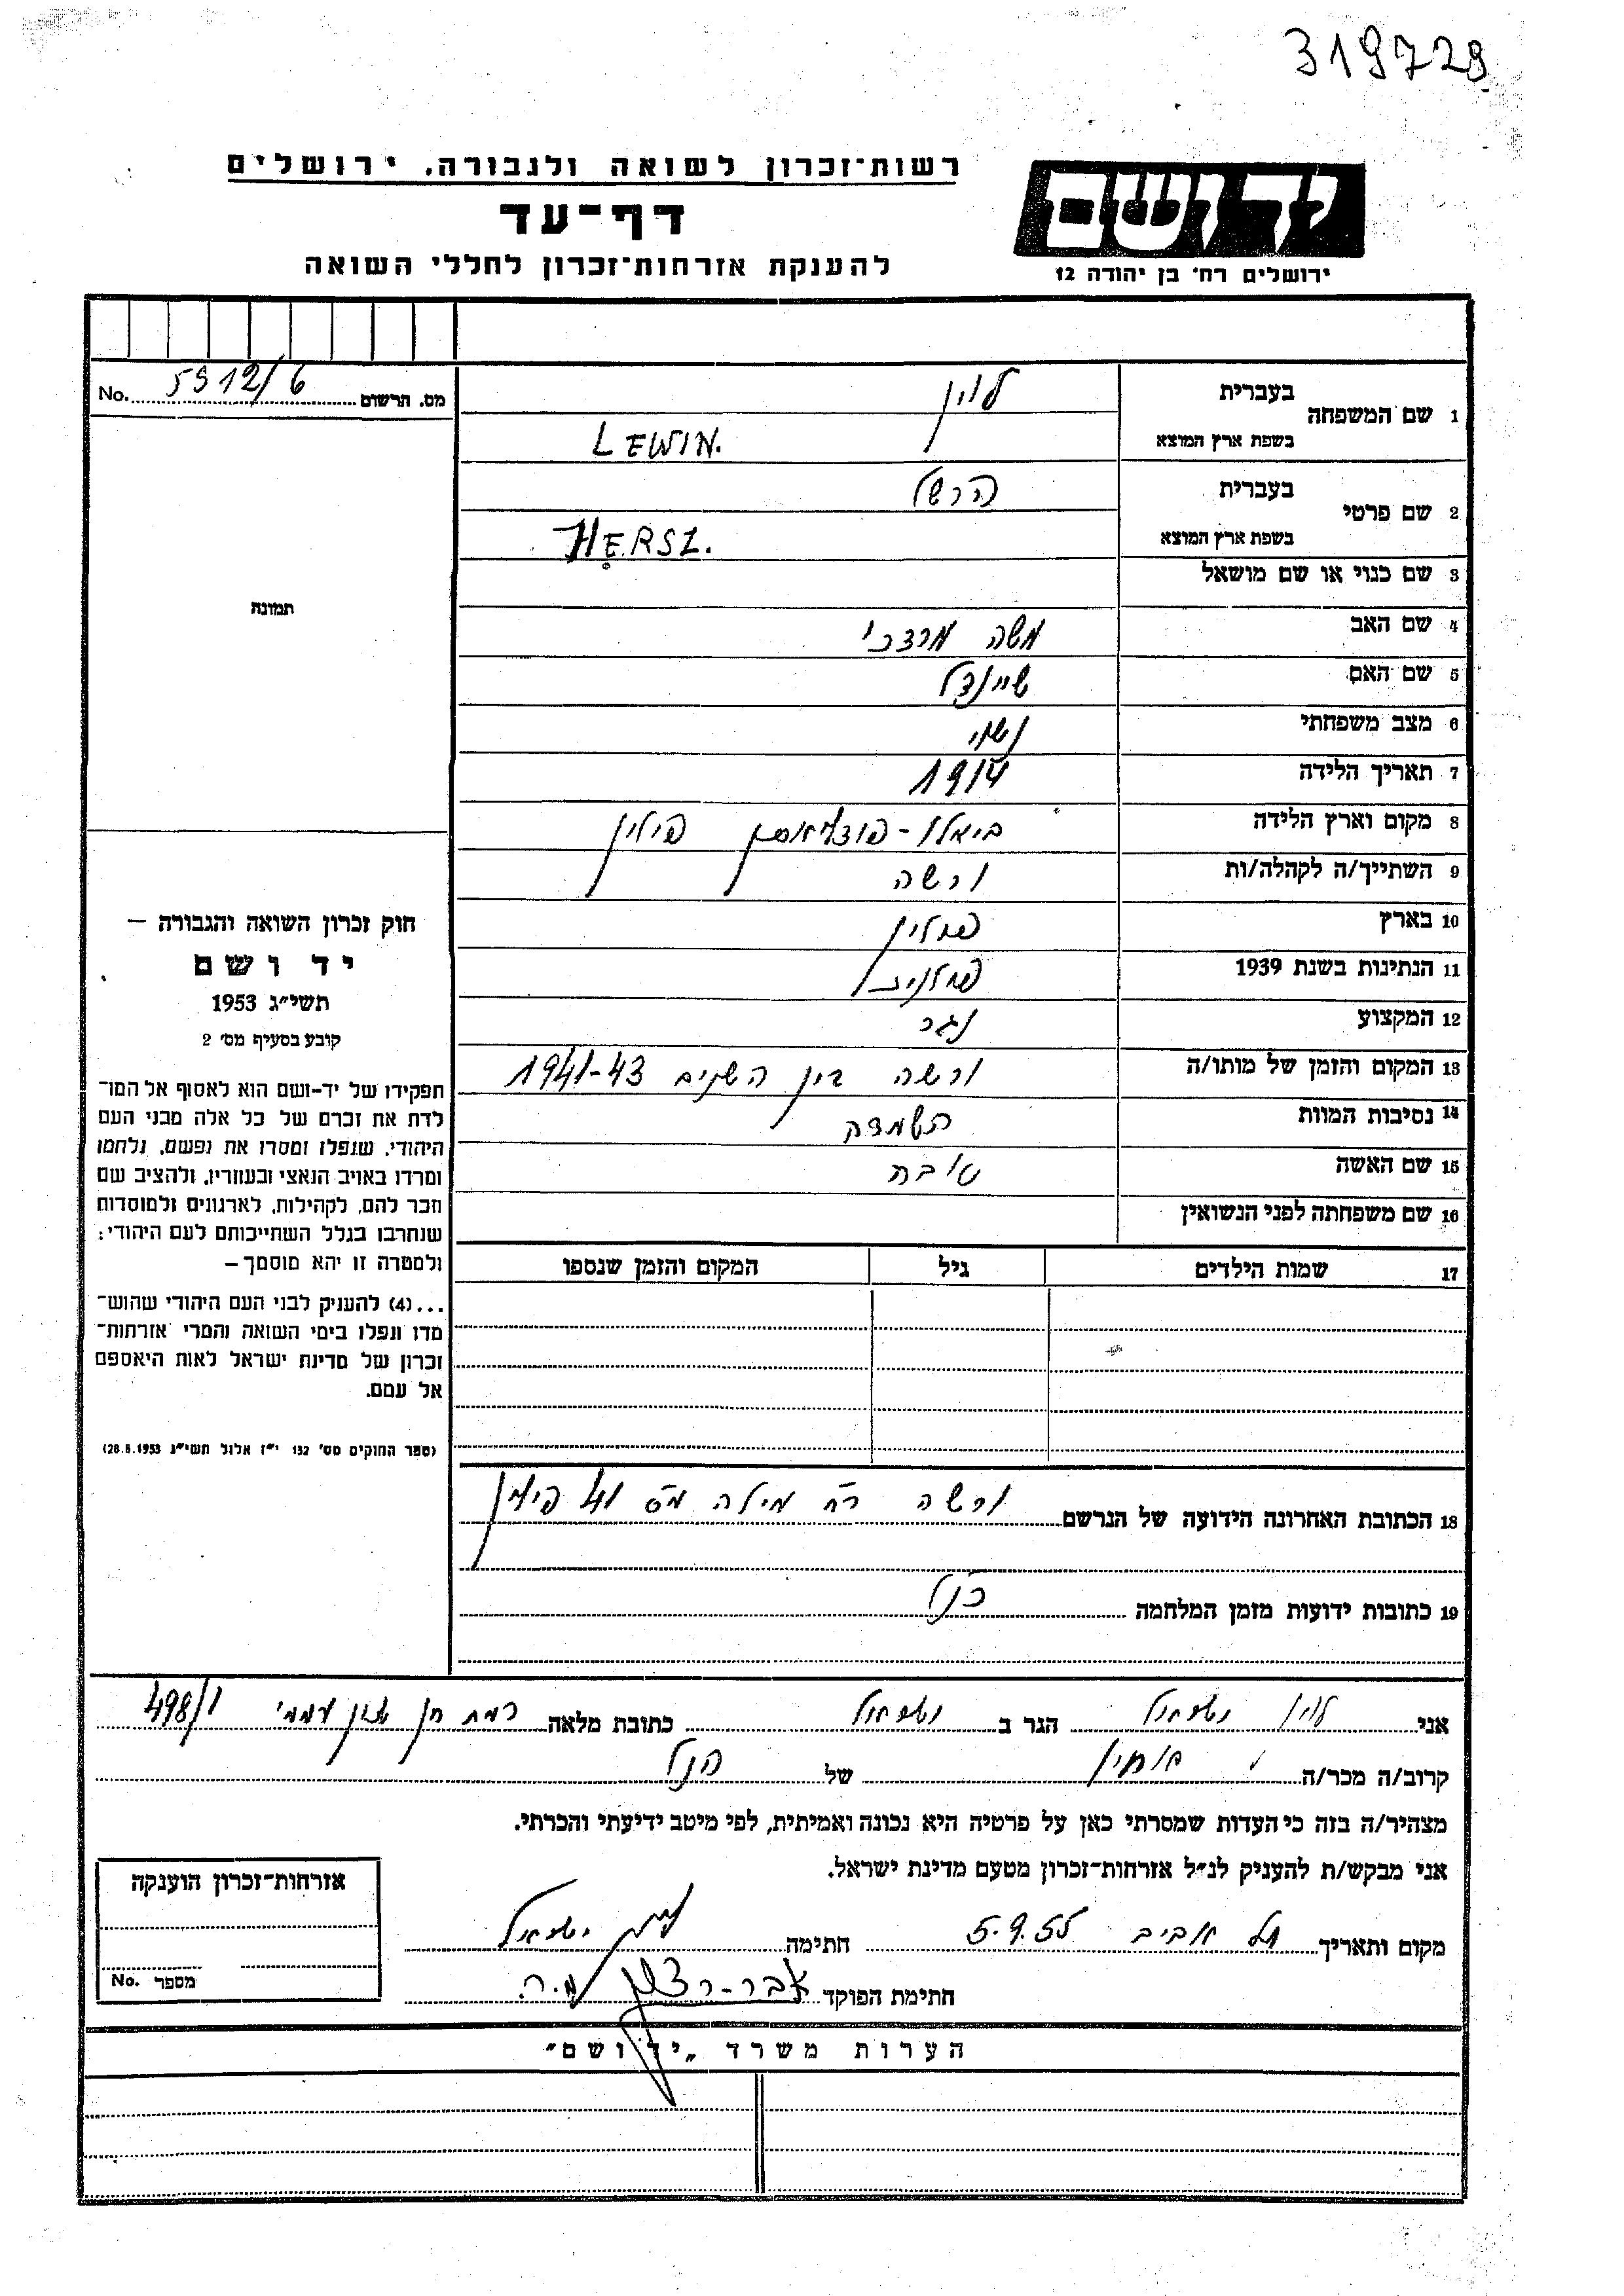 319729
רשות־זכרון לשואה ולגבורה, ירושלים
דף־עד
להענקת אזרחות־זכרון לחללי השואה
יד ושם
ירושלים רח׳ בן יהודה 12
מס. תרשום No. 5912/6
1 שם המשפחה בעברית לוין
בשפת ארץ המוצא LEWIN.
2 שם פרטי בעברית הרשל
בשפת ארץ המוצא HERSZ.
3 שם כנוי או שם מושאל
4 שם האב משה מרדכי
5 שם האם שיינדל
6 מצב משפחתי נשוי
7 תאריך הלידה 1914
8 מקום וארץ הלידה פולין
9 השתייך/ה לקהלה/ות ורשה
10 בארץ פולין
11 הנתינות בשנת 1939 פולנית
12 המקצוע נגר
13 המקום והזמן של מותו/ה ורשה בין השנים 1941-43
14 נסיבות המוות השמדה
15 שם האשה טובה
16 שם משפחתה לפני הנשואין
17 שמות הילדים גיל המקום והזמן שנספו
תמונה
חוק זכרון השואה והגבורה —
יד ושם
תשי״ג 1953
קובע בסעיף מס׳ 2
תפקידו של יד-ושם הוא לאסוף אל המו־
לדת את זכרם של כל אלה מבני העם
היהודי, שנפלו ומסרו את נפשם, נלחמו
ומרדו באויב הנאצי ובעוזריו, ולהציב שם
וזכר להם, לקהילות, לארגונים ולמוסדות
שנחרבו בגלל השתייכותם לעם היהודי;
ולמטרה זו יהא מוסמך —
...(4) להעניק לבני העם היהודי שהוש־
מדו ונפלו בימי השואה והמרי אזרחות־
זכרון של מדינת ישראל לאות היאספם
אל עמם.
(ספר החוקים מס׳ 132 י״ז אלול תשי״ג 28.8.1953)
18 הכתובת האחרונה הידועה של הנרשם ורשה רח׳ מילה מס 41 פולין
19 כתובות ידועות מזמן המלחמה כנ״ל
אני לוין ישראל הגר ב ישראל כתובת מלאה רמת חן שכון עממי 498/1
קרוב/ה מכר/ה אחיו של הנ״ל
מצהיר/ה בזה כי העדות שמסרתי כאן על פרטיה היא נכונה ואמיתית, לפי מיטב ידיעתי והכרתי.
אני מבקש/ת להעניק לנ״ל אזרחות־זכרון מטעם מדינת ישראל.
מקום ותאריך תל אביב 5.9.55 חתימה לוין ישראל
חתימת הפוקד
אזרחות־זכרון הוענקה
מספר No.
הערות משרד „יד ושם״